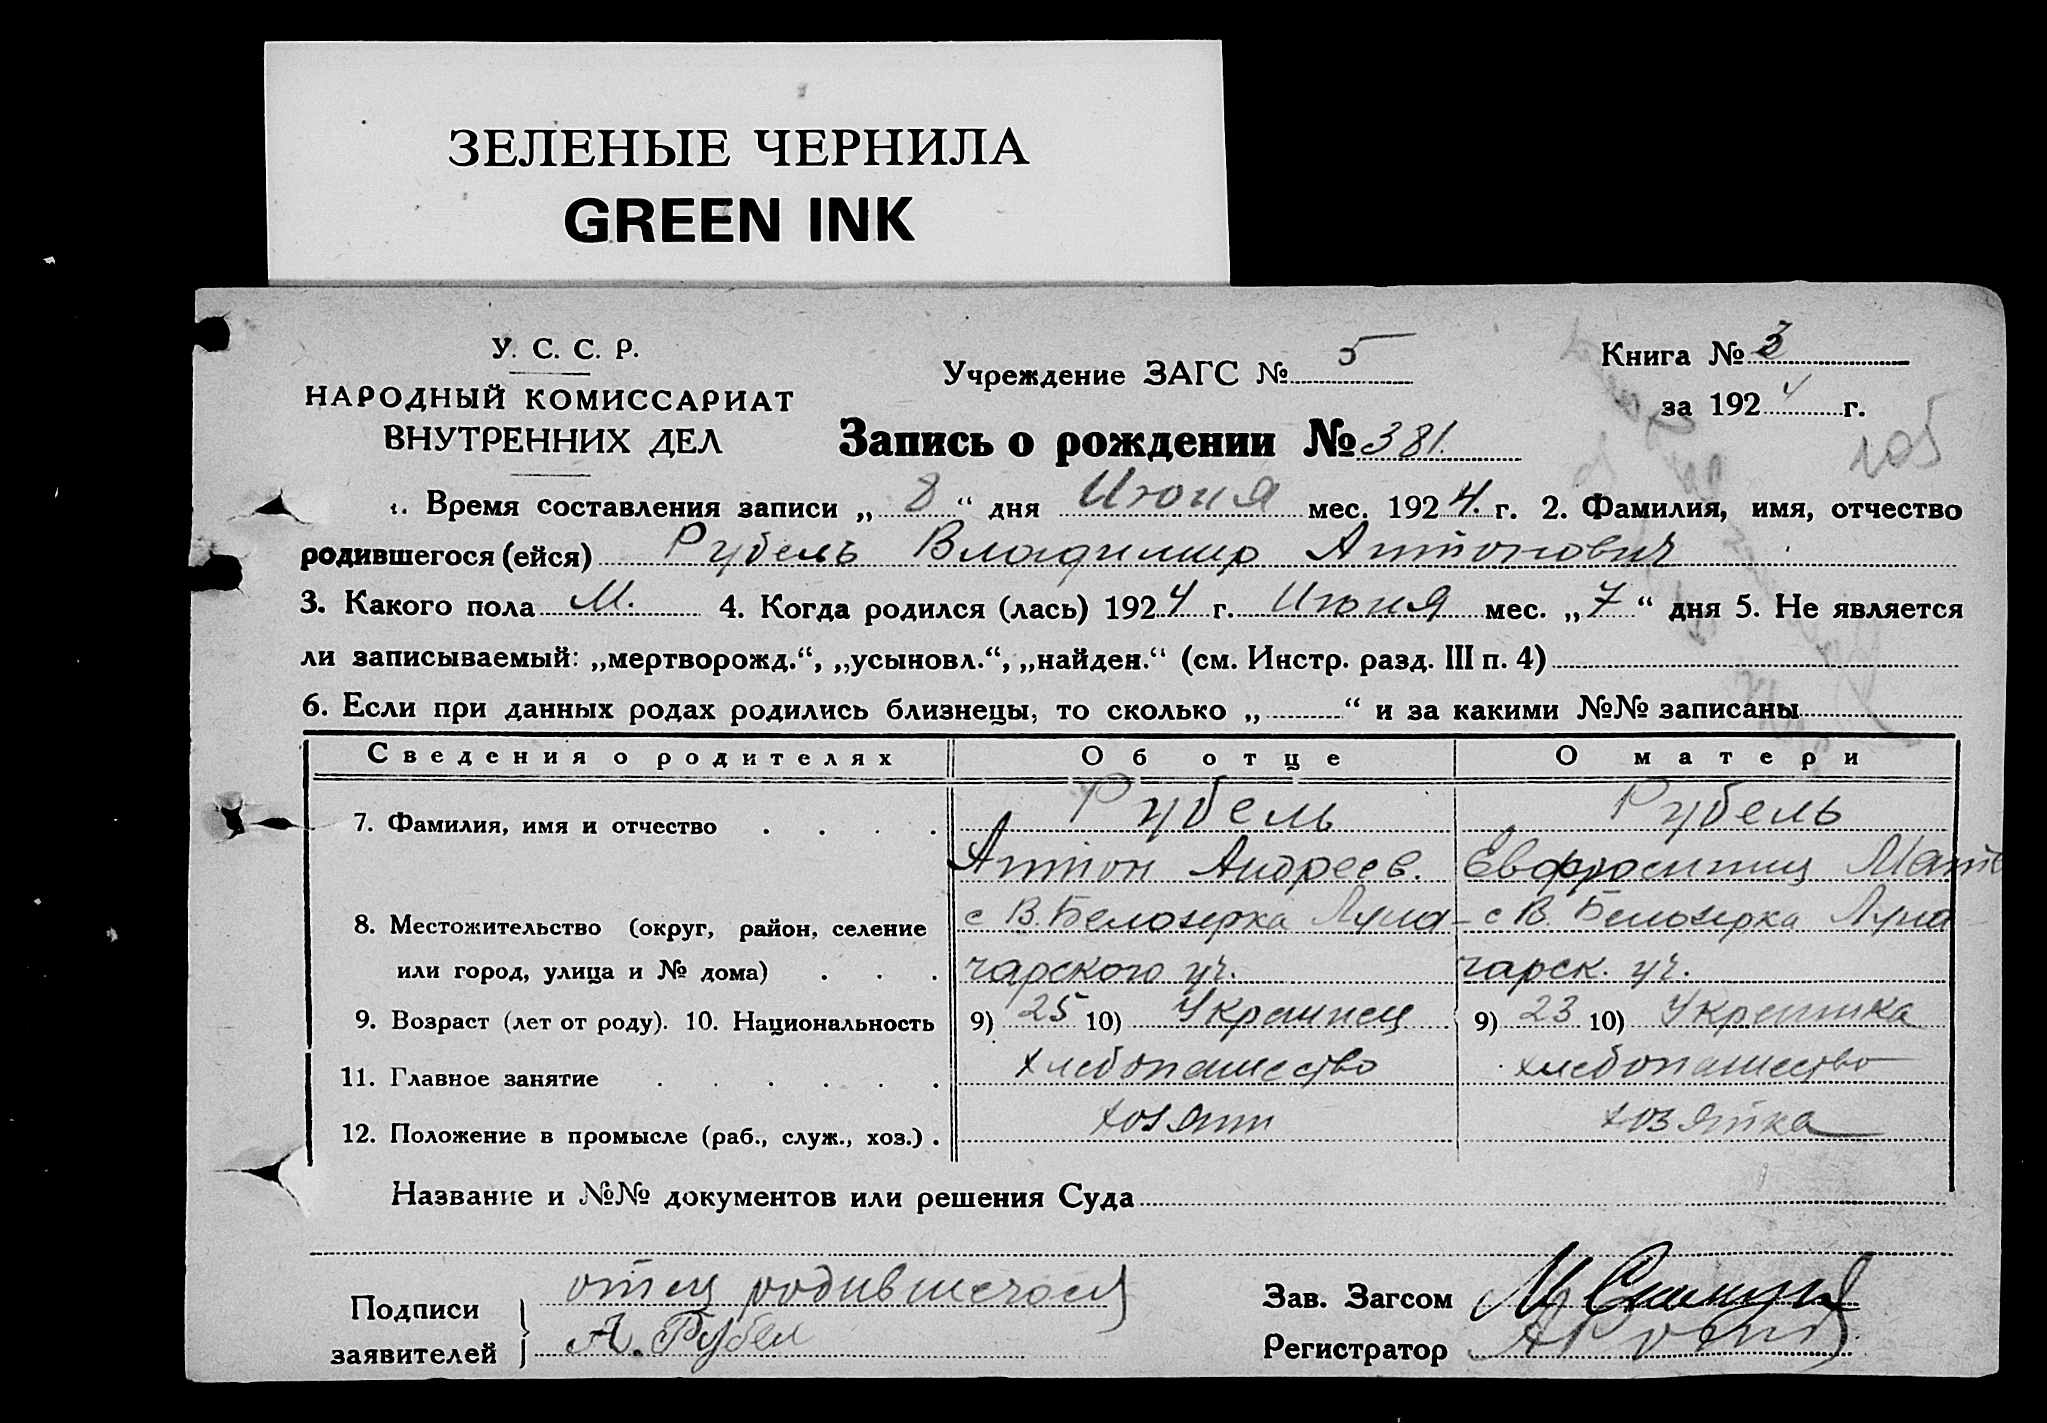 ЗЕЛЕНЫЕ ЧЕРНИЛА
GREEN INK
У. С. С. Р.
НАРОДНЫЙ КОМИССАРИАТ
ВНУТРЕННИХ ДЕЛ
Учреждение ЗАГС № 5
Книга № 3
за 1924 г.
105
Запись о рождении № 381.
1. Время составления записи „ 8 “ дня Июня мес. 1924. г. 2. Фамилия, имя, отчество
родившегося (ейся) Рубель Владимир Антонович
3. Какого пола М. 4. Когда родился (лась) 1924 г. Июня мес. „ 7 “ дня 5. Не является
ли записываемый: „мертворожд.“, „усыновл.“, „найден.“ (см. Инстр. разд. III п. 4)
6. Если при данных родах родились близнецы, то сколько „ “ и за какими №№ записаны
Сведения о родителях Об отце О матери
7. Фамилия, имя и отчество Рубель Рубель
Антон Андреев. Евфросиния Матв
8. Местожительство (округ, район, селение с В. Белозерка Луна- с В. Белозерка Луна
или город, улица и № дома) чарского уч. чарск. уч.
9. Возраст (лет от роду). 10. Национальность 9) 25 10) Украинец 9) 23 10) Украинка
11. Главное занятие хлебопашество хлебопашество
12. Положение в промысле (раб., служ., хоз.) хозяин хозяйка
Название и №№ документов или решения Суда
Подписи отец родившегося Зав. Загсом
заявителей А. Рубел Регистратор